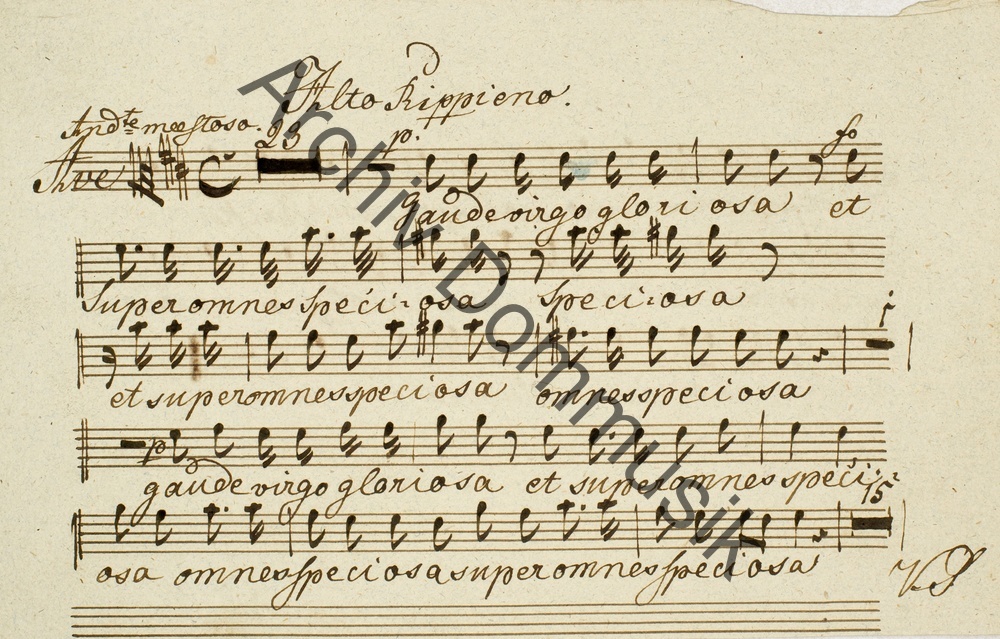 Alto Rippieno.
And.te maestoso. 23 p. fo
Ave
gaude virgo gloriosa et
super omnes speciosa speciosa
1
et super omnes speciosa omnes speciosa
p
gaude virgo gloriosa et super omnes speci
15
osa omnes speciosa super omnes speciosa
VS
Archiv Dommusik